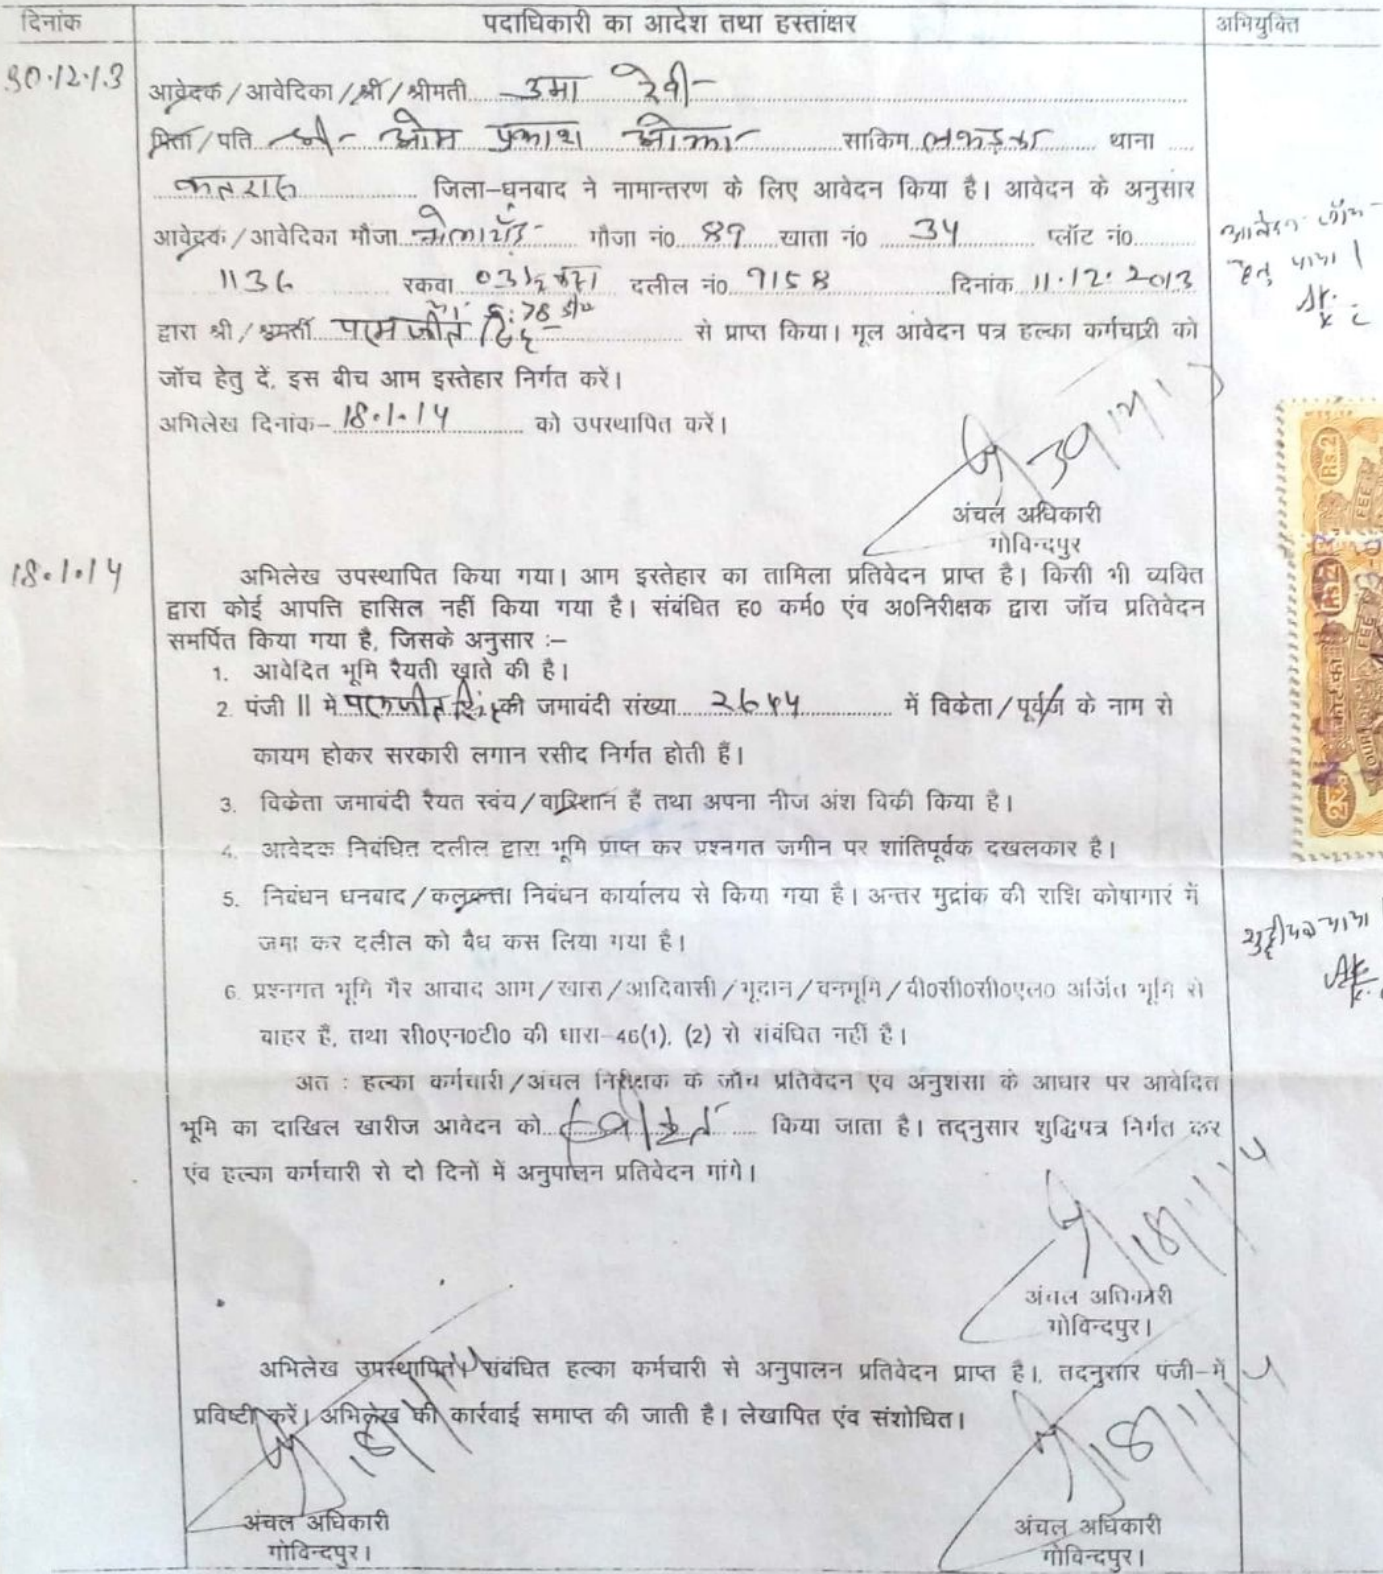 दिनांक पदाधिकारी का आदेश तथा हस्तांक्षर अभियुक्ति
30.12.13 आवेदक/आवेदिका/श्री/श्रीमती उमा देवी
पिता/पति श्री- ओम प्रकाश ओझा साकिम थाना
कतरास जिला-धनवाद ने नामान्तरण के लिए आवेदन किया है। आवेदन के अनुसार
आवेदक/आवेदिका मौजा गौजा नं० 89 खाता नं० 34 प्लॉट नं०
1136 रकवा 03½ दलील नं० 9158 दिनांक 11.12.2013
द्वारा श्री/श्रीमती परमजीत सिंह से प्राप्त किया। मूल आवेदन पत्र हल्का कर्गचारी को
जॉच हेतु दें, इस बीच आम इस्तेहार निर्गत करें।
अभिलेख दिनांक- 18.1.14 को उपस्थापित करें।
आवेदन जाँच
हेतु पाया।
अंचल अधिकारी
गोविन्दपुर
18.1.14 अभिलेख उपस्थापित किया गया। आम इस्तेहार का तामिला प्रतिवेदन प्राप्त है। किसी भी व्यक्ति
द्वारा कोई आपत्ति हासिल नहीं किया गया है। संबंधित ह० कर्म० एंव अ०निरीक्षक द्वारा जॉच प्रतिवेदन
समर्पित किया गया है, जिसके अनुसार :–
1. आवेदित भूमि रैयती खाते की है।
2. पंजी II में परमजीत सिंह की जमावंदी संख्या 2644 में विकेता/पूर्वज के नाम से
कायम होकर सरकारी लगान रसीद निर्गत होती हैं।
3. विकेता जमाबंदी रैयत स्वंय/वारिशान हैं तथा अपना नीज अंश विकी किया है।
4. आवेदक निबंधित दलील द्वारा भूमि प्राप्त कर प्रश्नगत जमीन पर शांतिपूर्वक दखलकार है।
5. निबंधन धनबाद/कलकत्ता निबंधन कार्यालय से किया गया है। अन्तर मुद्रांक की राशि कोषागार में
जमा कर दलील को वैध कस लिया गया है।
6. प्रश्नगत भूमि गैर आबाद आम/खास/आदिवासी/भूदान/वनभूमि/वी०सी०सी०एल० अर्जित भूमि से
बाहर हैं, तथा सी०एन०टी० की धारा-46(1), (2) से संबंधित नहीं है।
अत : हल्का कर्मचारी/अंचल निरीक्षक के जॉच प्रतिवेदन एंव अनुशंसा के आधार पर आवेदित
भूमि का दाखिल खारीज आवेदन को स्वीकृत किया जाता है। तद्नुसार शुद्धिपत्र निर्गत कर
एंव हल्का कर्मचारी से दो दिनों में अनुपालन प्रतिवेदन मांगे।
अंचल अधिकारी
गोविन्दपुर।
अभिलेख उपस्थापित। संबंधित हल्का कर्मचारी से अनुपालन प्रतिवेदन प्राप्त है।, तदनुसार पंजी-में
प्रविष्टी करें। अभिलेख की कार्रवाई समाप्त की जाती है। लेखापित एंव संशोधित।
अंचल अधिकारी अंचल अधिकारी
गोविन्दपुर। गोविन्दपुर।
Rs.2